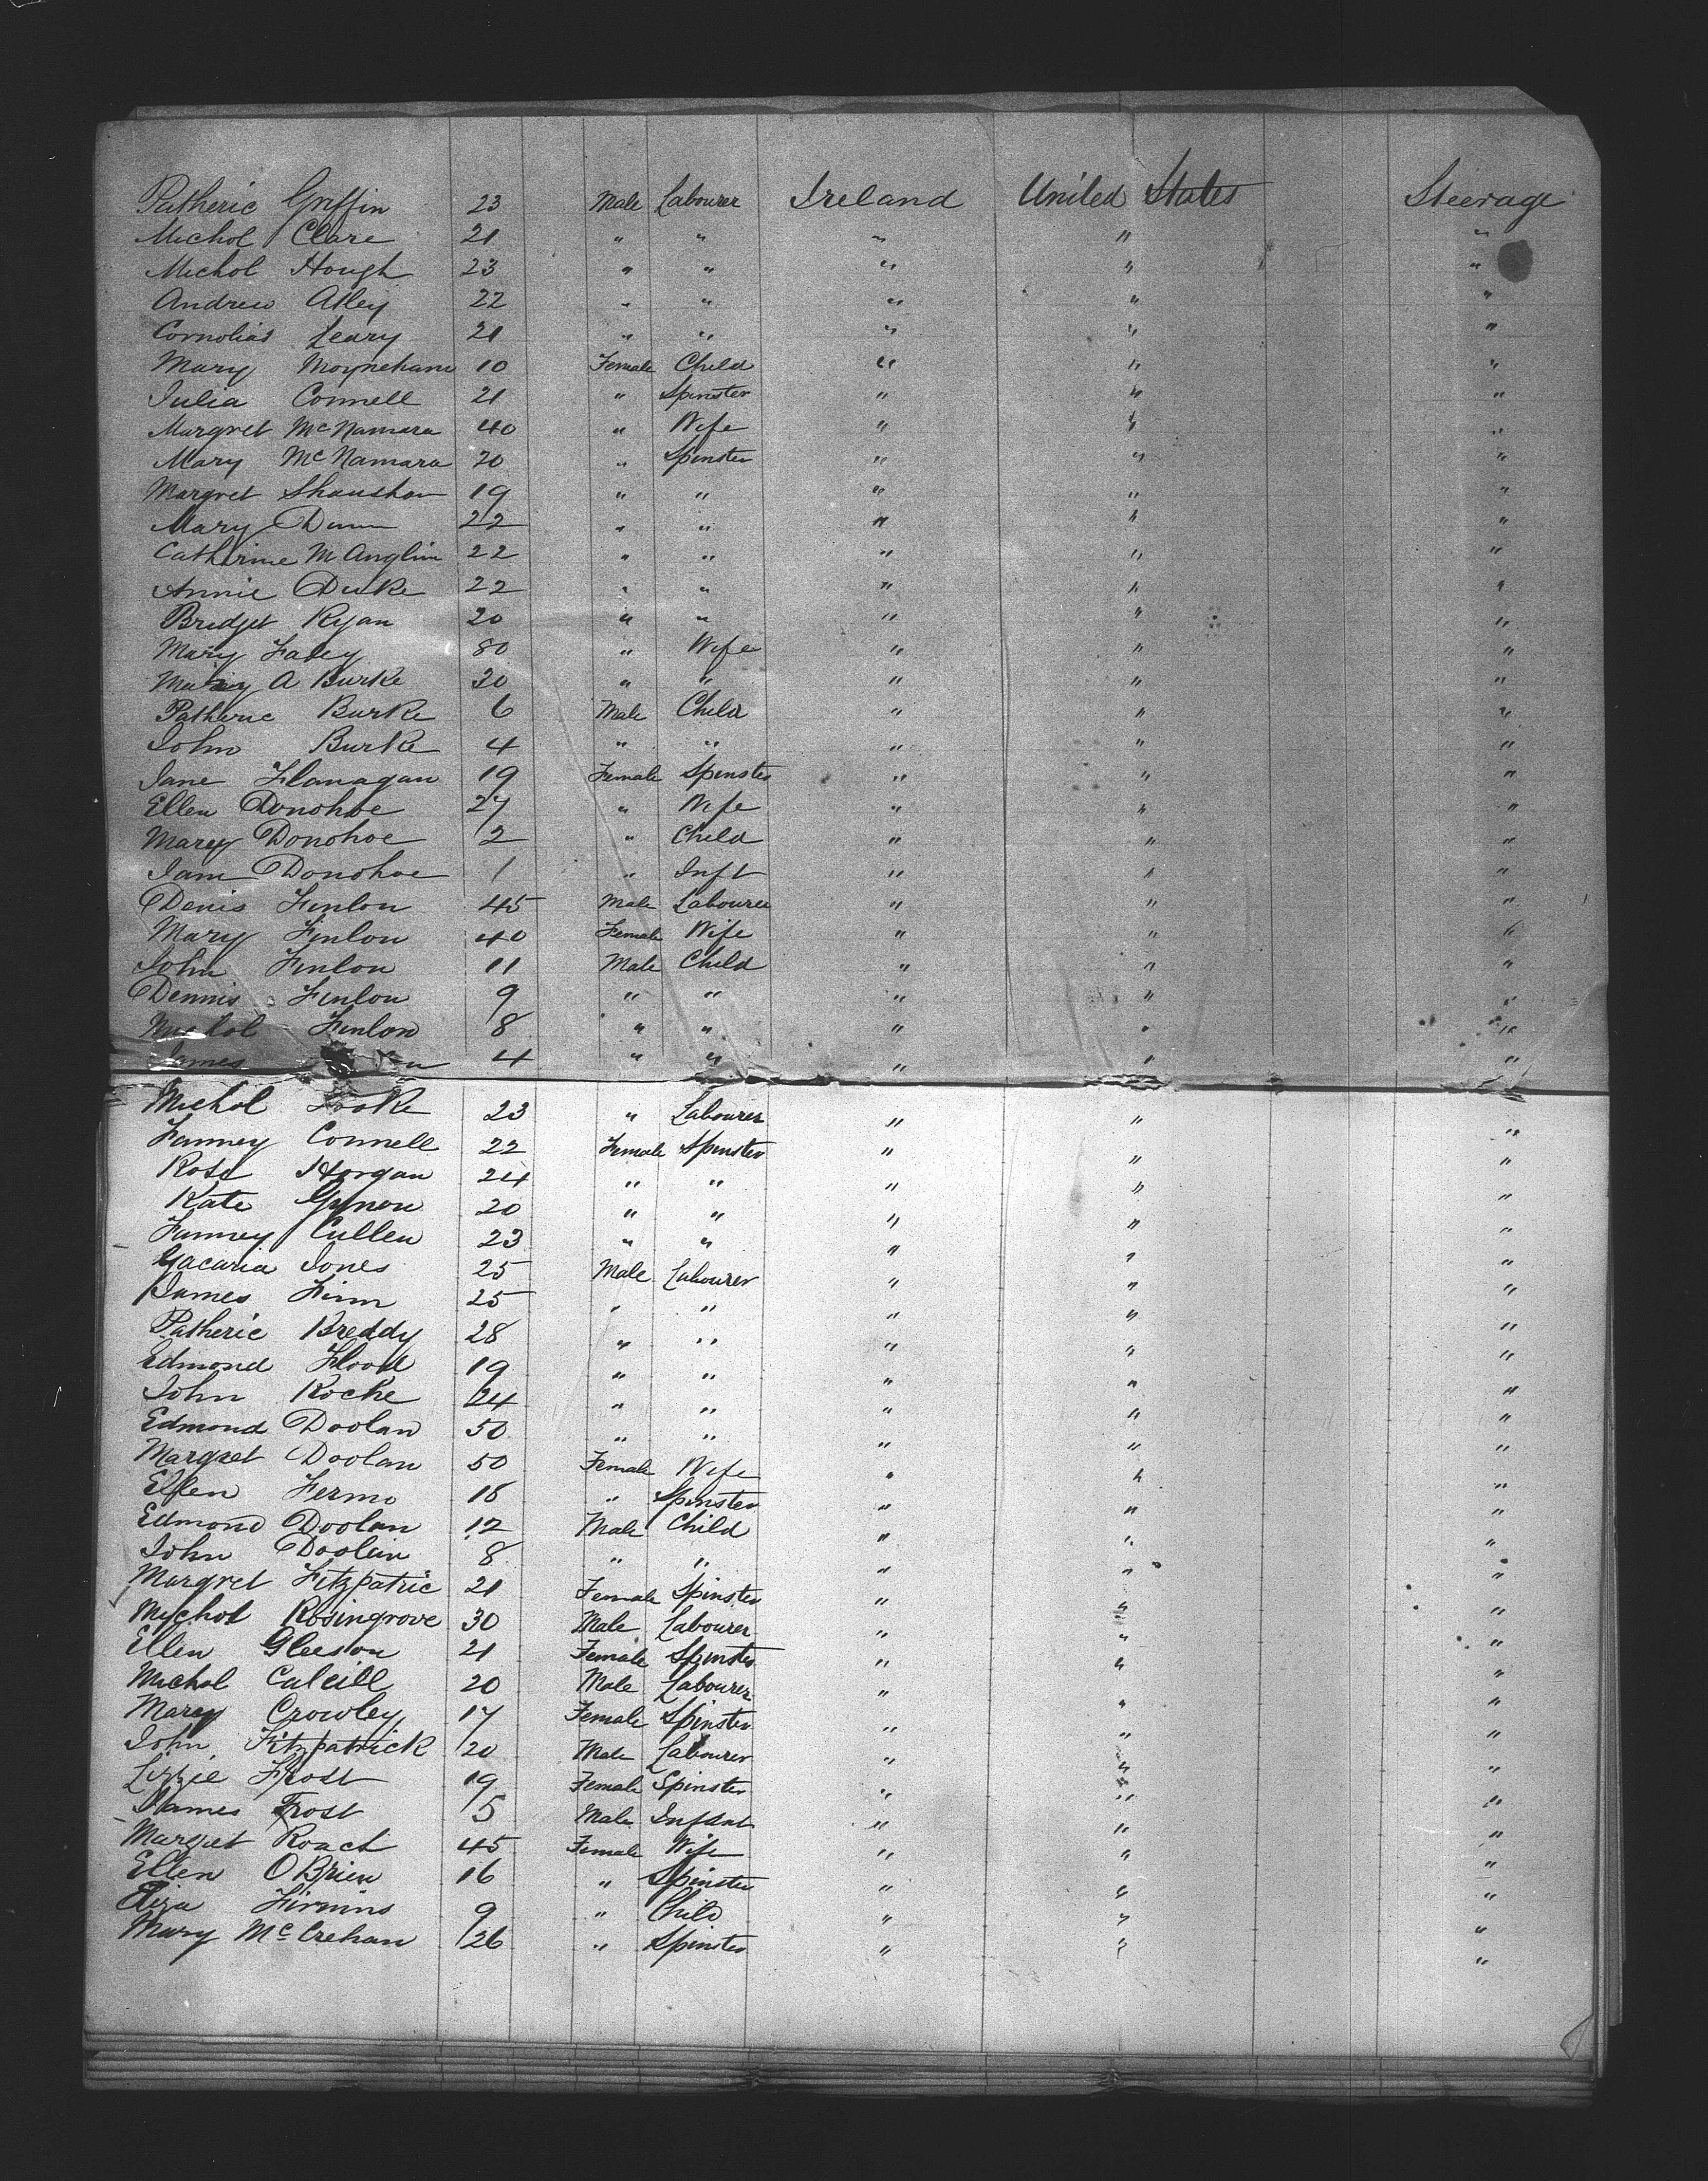 Patheric Griffin 23 Male Labourer Ireland United States Steerage
Michol Clare 21 " " " " "
Michol Hough 23 " " " " "
Andrew Alley 22 " " " " "
Cornolias Leary 21 " " " " "
Mary Moyneham 10 Female Child " " "
Julia Connell 21 " Spinster " " "
Margret McNamara 40 " Wife " " "
Mary McNamara 20 " Spinster " " "
Margret 19 " " " " "
Mary Dunn 22 " " " " "
Catherine M Anglim 22 " " " " "
Annie Duke 22 " " " " "
Bridget Ryan 20 " " " " "
Mary Fahey 80 " Wife " " "
Mary A Burke 30 " " " " "
Patheric Burke 6 Male Child " " "
John Burke 4 " " " " "
Jane Flanagan 19 Female Spinster " " "
Ellen Donohoe 27 " Wife " " "
Mary Donohoe 2 " Child " " "
Jam Donohoe 1 " Inft " " "
Denis Finlon 45 Male Labourer " " "
Mary Finlon 40 Female Wife " " "
John Finlon 11 Male Child " " "
Dennis Finlon 9 " " " " "
Michol Finlon 8 " " " " "
James 4 " " " " "
Michol 23 " Labourer " " "
Fanney Connell 22 Female Spinster " " "
Rose Horgan 24 " " " " "
Kate 20 " " " " "
Fanney Cullen 23 " " " " "
Jones 25 Male Labourer " " "
James Finn 25 " " " " "
Patheric Breddy 28 " " " " "
Edmond Flood 19 " " " " "
John Roche 24 " " " " "
Edmond Doolan 50 " " " " "
Margret Doolan 50 Female Wife " " "
Ellen Fermo 18 " Spinster " " "
Edmond Doolan 12 Male Child " " "
John Doolan 8 " " " " "
Margret Fitzpatric 21 Female Spinster " " "
Mychol Rosingrove 30 Male Labourer " " "
Ellen Gleeson 21 Female Spinster " " "
Michol Calcill 20 Male Labourer " " "
Mary Crowley 17 Female Spinster " " "
John Fitzpatrick 20 Male Labourer " " "
Lizzie Frost 19 Female Spinster " " "
James Frost 5 Male Infant " " "
Margret Roach 45 Female Wife " " "
Ellen OBrien 16 " Spinster " " "
Eliza Firmins 9 " Child " " "
Mary McCrehan 26 " Spinster " " "